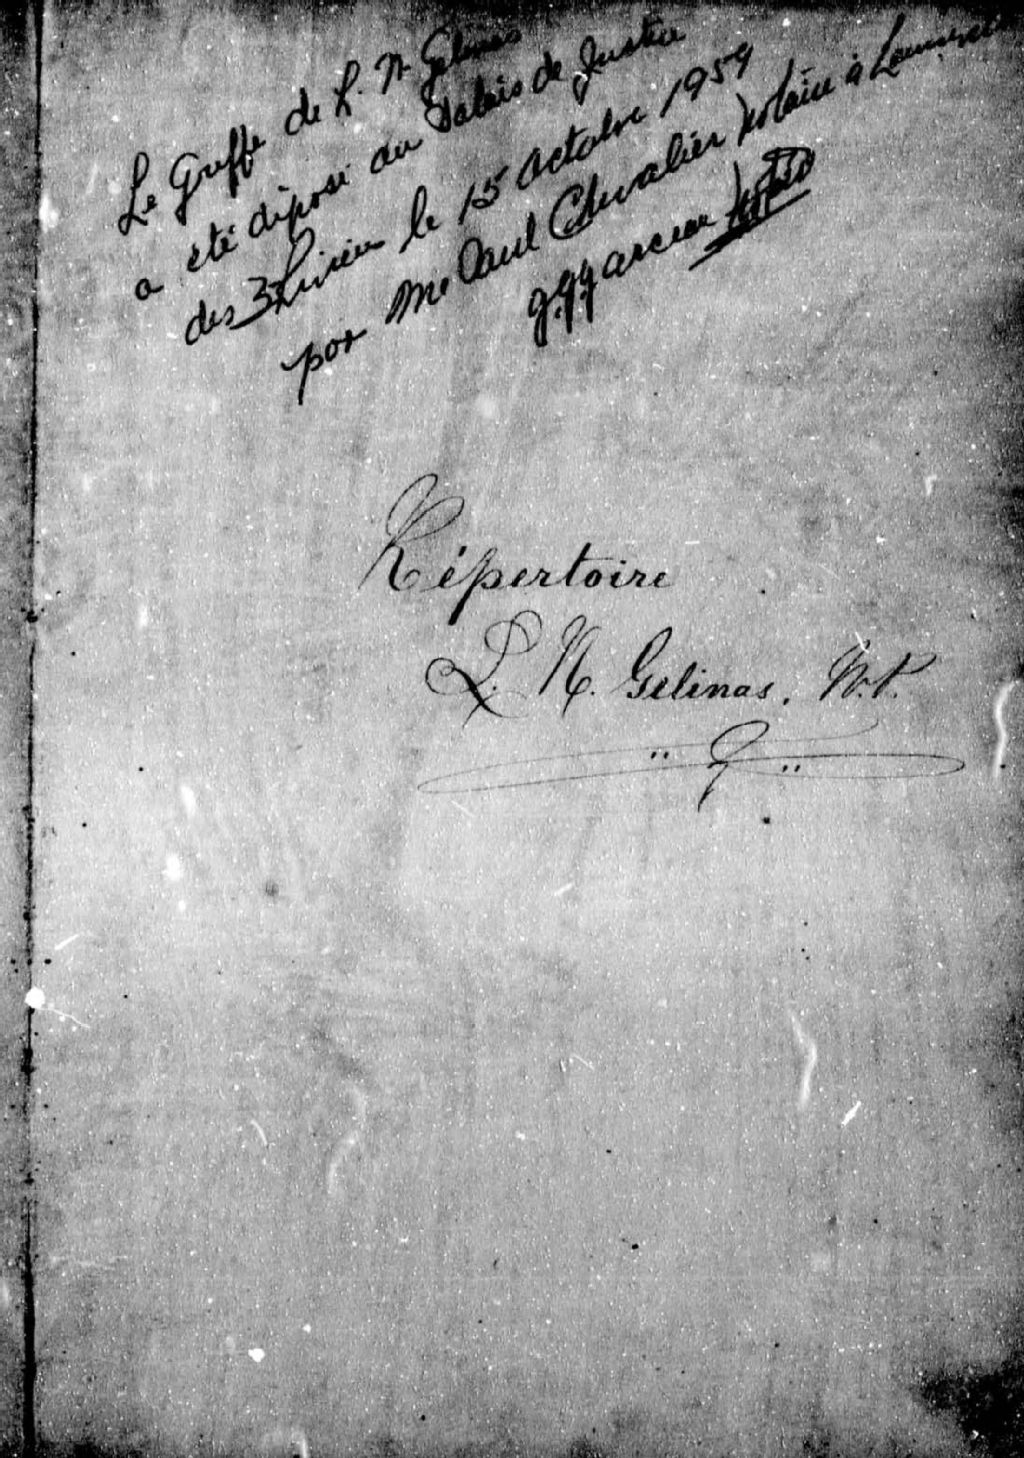 Le Greffe de L. N Gelinas
a été déposé au Palais de Justice
des 3 Rivières le 15 octobre 1959
par Me Paul Chevalier Notaire à
Répertoire
L. N. Gelinas, N.P.